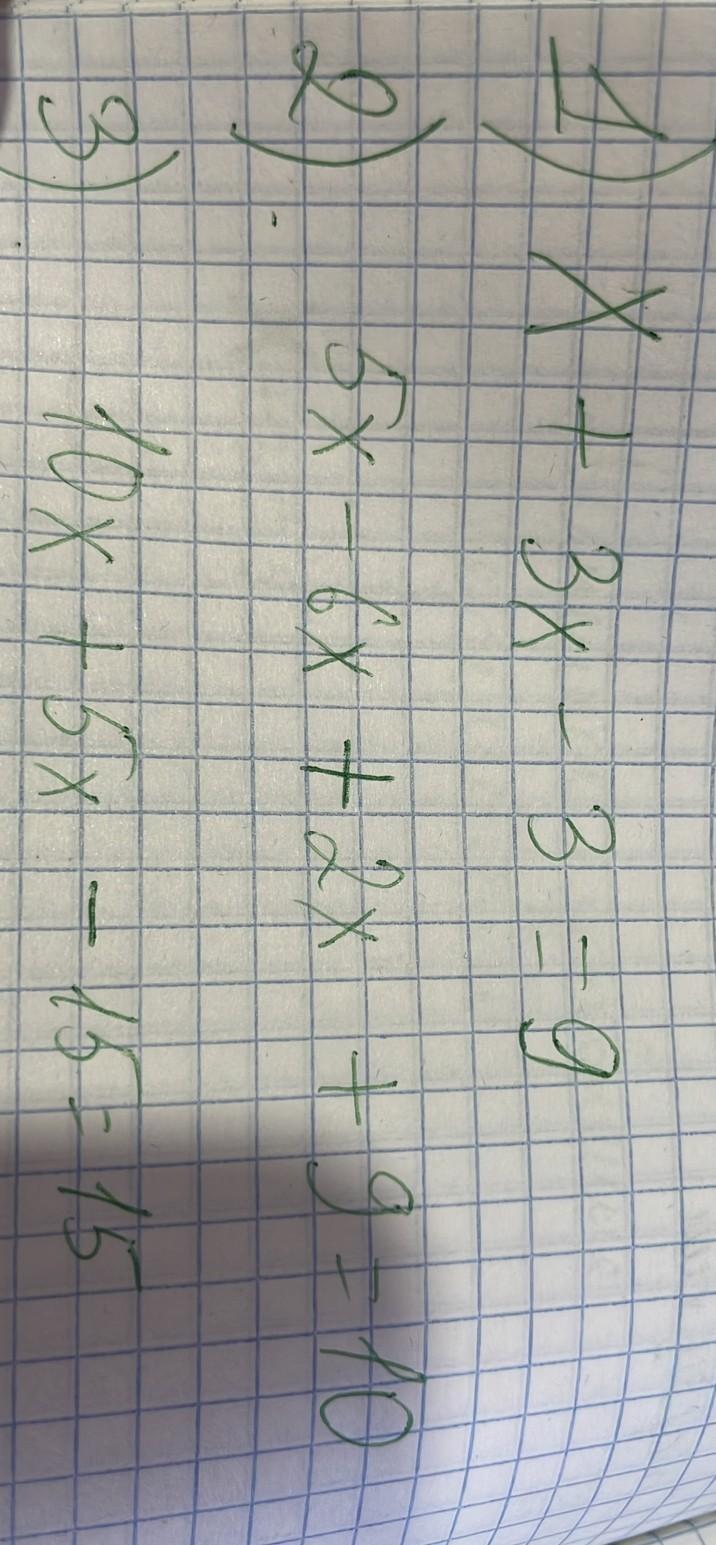 1) x + 3x - 3 = 9
2) 5x - 6x + 2x + 9 = 10
3) 10x + 5x - 15 = 15